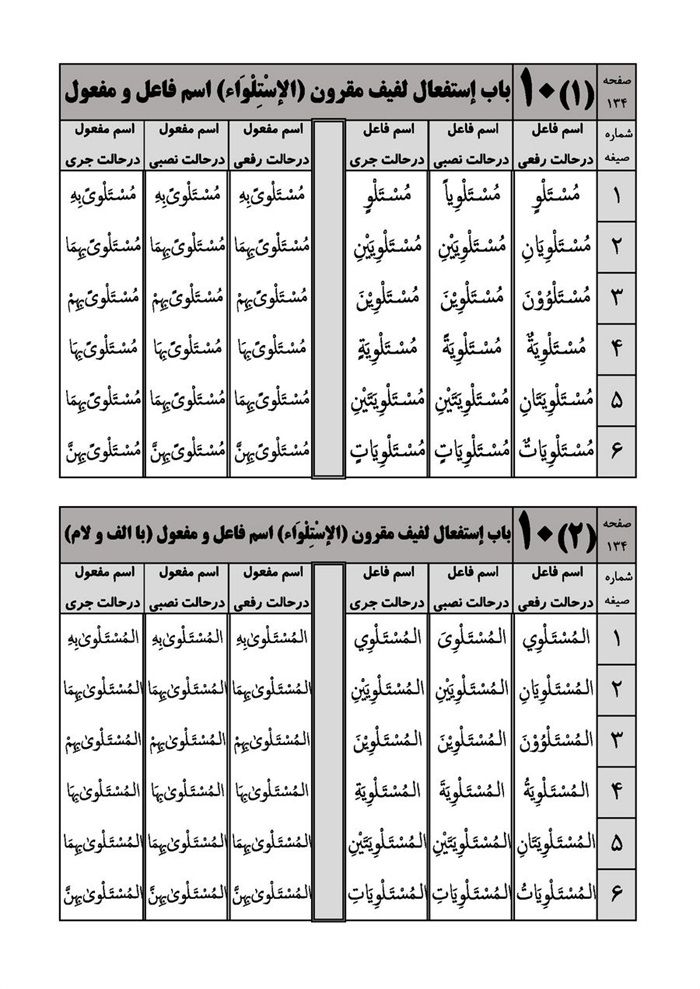 صفحه ۱۳۴ (۱)۱۰ باب إستفعال لفیف مقرون (الإسْتِلْوَاء) اسم فاعل و مفعول
شماره صیغه اسم فاعل درحالت رفعی اسم فاعل درحالت نصبی اسم فاعل درحالت جری اسم مفعول درحالت رفعی اسم مفعول درحالت نصبی اسم مفعول درحالت جری
۱ مُسْتَلْوٍ مُسْتَلْوِیاً مُسْتَلْوٍ مُسْتَلْویً بِهِ مُسْتَلْویً بِهِ مُسْتَلْویً بِهِ
۲ مُسْتَلْوِیَانِ مُسْتَلْوِیَیْنِ مُسْتَلْوِیَیْنِ مُسْتَلْویً بِهِمَا مُسْتَلْویً بِهِمَا مُسْتَلْویً بِهِمَا
۳ مُسْتَلْوُوْنَ مُسْتَلْوِیْنَ مُسْتَلْوِیْنَ مُسْتَلْویً بِهِمْ مُسْتَلْویً بِهِمْ مُسْتَلْویً بِهِمْ
۴ مُسْتَلْوِیَةٌ مُسْتَلْوِیَةً مُسْتَلْوِیَةٍ مُسْتَلْویً بِهَا مُسْتَلْویً بِهَا مُسْتَلْویً بِهَا
۵ مُسْتَلْوِیَتَانِ مُسْتَلْوِیَتَیْنِ مُسْتَلْوِیَتَیْنِ مُسْتَلْویً بِهِمَا مُسْتَلْویً بِهِمَا مُسْتَلْویً بِهِمَا
۶ مُسْتَلْوِیَاتٌ مُسْتَلْوِیَاتٍ مُسْتَلْوِیَاتٍ مُسْتَلْویً بِهِنَّ مُسْتَلْویً بِهِنَّ مُسْتَلْویً بِهِنَّ
صفحه ۱۳۴ (۲)۱۰ باب إستفعال لفیف مقرون (الإسْتِلْوَاء) اسم فاعل و مفعول (با الف و لام)
شماره صیغه اسم فاعل درحالت رفعی اسم فاعل درحالت نصبی اسم فاعل درحالت جری اسم مفعول درحالت رفعی اسم مفعول درحالت نصبی اسم مفعول درحالت جری
۱ المُسْتَلْوِي المُسْتَلْوِیَ المُسْتَلْوِي المُسْتَلْویٰ بِهِ المُسْتَلْویٰ بِهِ المُسْتَلْویٰ بِهِ
۲ المُسْتَلْوِیَانِ المُسْتَلْوِیَیْنِ المُسْتَلْوِیَیْنِ المُسْتَلْویٰ بِهِمَا المُسْتَلْویٰ بِهِمَا المُسْتَلْویٰ بِهِمَا
۳ المُسْتَلْوُوْنَ المُسْتَلْوِیْنَ المُسْتَلْوِیْنَ المُسْتَلْویٰ بِهِمْ المُسْتَلْویٰ بِهِمْ المُسْتَلْویٰ بِهِمْ
۴ المُسْتَلْوِیَةُ المُسْتَلْوِیَةَ المُسْتَلْوِیَةِ المُسْتَلْویٰ بِهَا المُسْتَلْویٰ بِهَا المُسْتَلْویٰ بِهَا
۵ المُسْتَلْوِیَتَانِ المُسْتَلْوِیَتَیْنِ المُسْتَلْوِیَتَیْنِ المُسْتَلْویٰ بِهِمَا المُسْتَلْویٰ بِهِمَا المُسْتَلْویٰ بِهِمَا
۶ المُسْتَلْوِیَاتُ المُسْتَلْوِیَاتِ المُسْتَلْوِیَاتِ المُسْتَلْویٰ بِهِنَّ المُسْتَلْویٰ بِهِنَّ المُسْتَلْویٰ بِهِنَّ